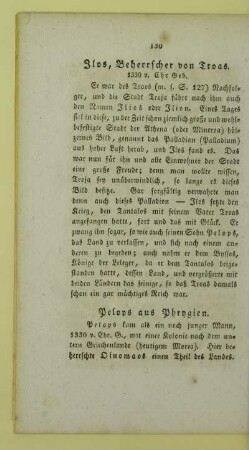 130
Ilos, Beherrscher von Troas.
1330 v. Chr Geb.
Er war des Troes (m. s. S. 127) Nachfol-
ger, und die Stadt Troja führt nach ihm auch
den Namen Ilios oder Ilion. Eines Tages
fiel in diese, zu der Zeit schon ziemlich große und wohl-
befestigte Stadt der Athena (oder Minerva) höl-
zernes Bild, genannt das Palladien (Palladium)
aus heher Luft herab, und Ilos fand es. Das
war nun für ihn und alle Einwohner der Stadt
eine große Freude; denn man wollte wissen,
Troja sey unüberwindlich, so lange es dieses
Bild besitze. Gar sorgfältig verwahrte man
denn auch dieses Palladien — Ilos setzte den
Krieg, den Tantalos mit seinem Vater Troas
angefangen hatte, fort und das mit Glück. Er
zwang ihn, so wie auch seinen Sohn Pelops,
das Land zu verlassen, und sich nach einem an-
deren zu begeben; auch nahm er dem Byssos,
Könige der Leleger, da er dem Tantalos beige-
standen hatte, dessen Land, und vergrößerte mit
beiden Ländern das seinige, so das Troas damals
schon ein gar mächtiges Reich war.
Pelops aus Phrygien.
Pelops kam als ein noch junger Mann,
1330 v. Chr. G., mit einer Kolonie nach dem un-
tern Griechenlande (heutigem Morea). Hier be-
herrschte Oinomaos einen Theil des Landes.